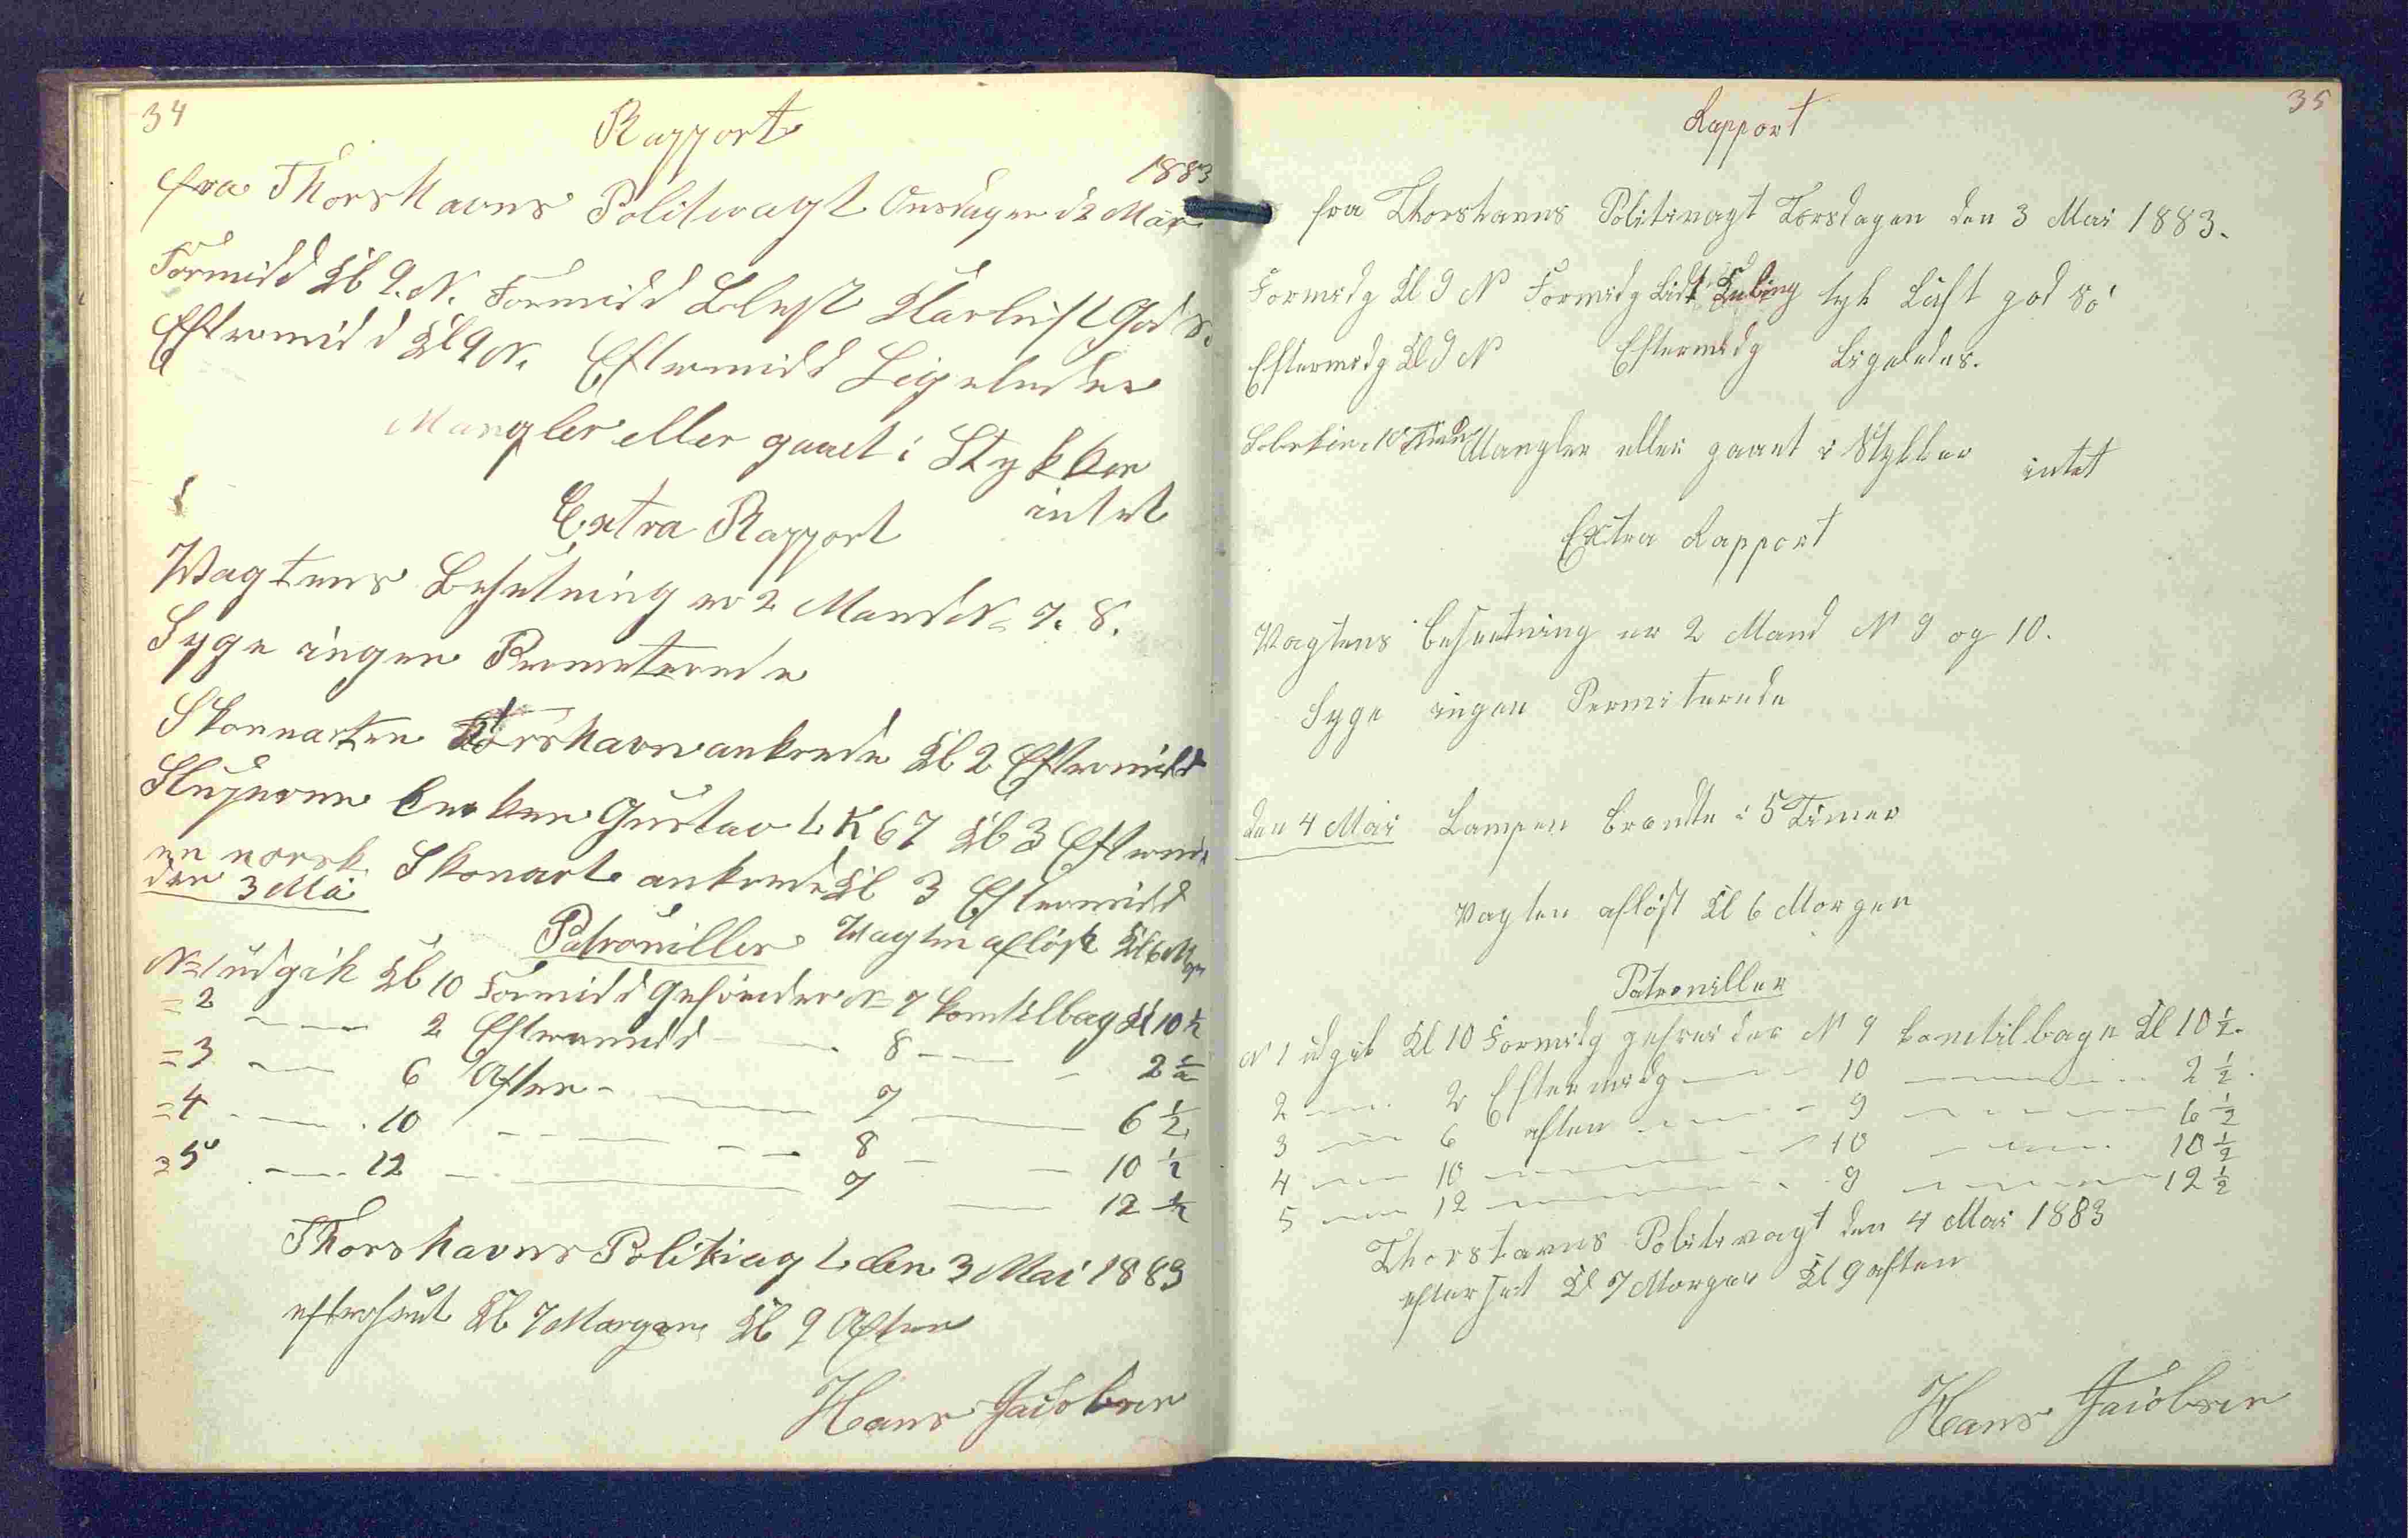 34
Rapport
1883
fra Thorshavns Politivagt Onsdagen d 2 Mai
Formidd Kl 9. N. Formidd Klarluft God
Eftermidd Kl 9 N. Eftermidd Ligeledes
Mangler eller gaaet i Stykker
intet
Extra Rapport
Vagtens Besetning er 2 Mand N= 7. 8.
Syge ingen Permeterede
Skonnarten Torshavn ankrede Kl 2 Eftermidd
Slupperne Gustav L. K 67 Kl 3 Eftermi
en norsk Skonart ankrede Kl 3 Eftermidd
den 3 Mai
Patrouiller Vagten afløst Kl 6 M
N=1 udgik Kl 10 Formidd Gefreider N= 7 kom tilbag Kl 10 ½
= 2 — — 2 Eftermidd — 8 — — 2 ½
= 3 — — 6 Aften — — 7 — — 6 ½
= 4 — — 10 — — — 8 — — 10 ½
= 5 — — 12 — — — 7 — — 12 ½
Thorshavns Politivagt den 3 Mai 1883
efterseet Kl 7 Morgen Kl 9 Aften
Hans Jacobsen
35
Rapport
fra Thorshavns Politivagt Torsdagen den 3 Mai 1883.
Formidg Kl 9 N Formidg Lidt Kuling tyk Luft god So
Eftermidg Kl 9 N Eftermidg Ligeledes.
Mangler eller gaaet i Stykker intet
Extra Rapport
Vagtens Besetning er 2 Mand N 9 og 10.
Syge ingen Permiterede
den 4 Mai Lampen brandte i 5 Timer
Vagten afløst Kl 6 Morgen
Patroniller
N 1 udgik Kl 10 Formidg gefreider N 9 kom tilbage Kl 10 ½.
2 — — 2 Eftermidg — — 10 — — 2 ½.
3 — — 6 aften — — 9 — — 6 ½
4 — — 10 — — — 10 — — 10 ½
5 — — 12 — — — 9 — — 12 ½
Thorshavns Politivagt den 4 Mai 1883
efterset Kl 7 Morgen Kl 9 aften
Hans Jacobsen